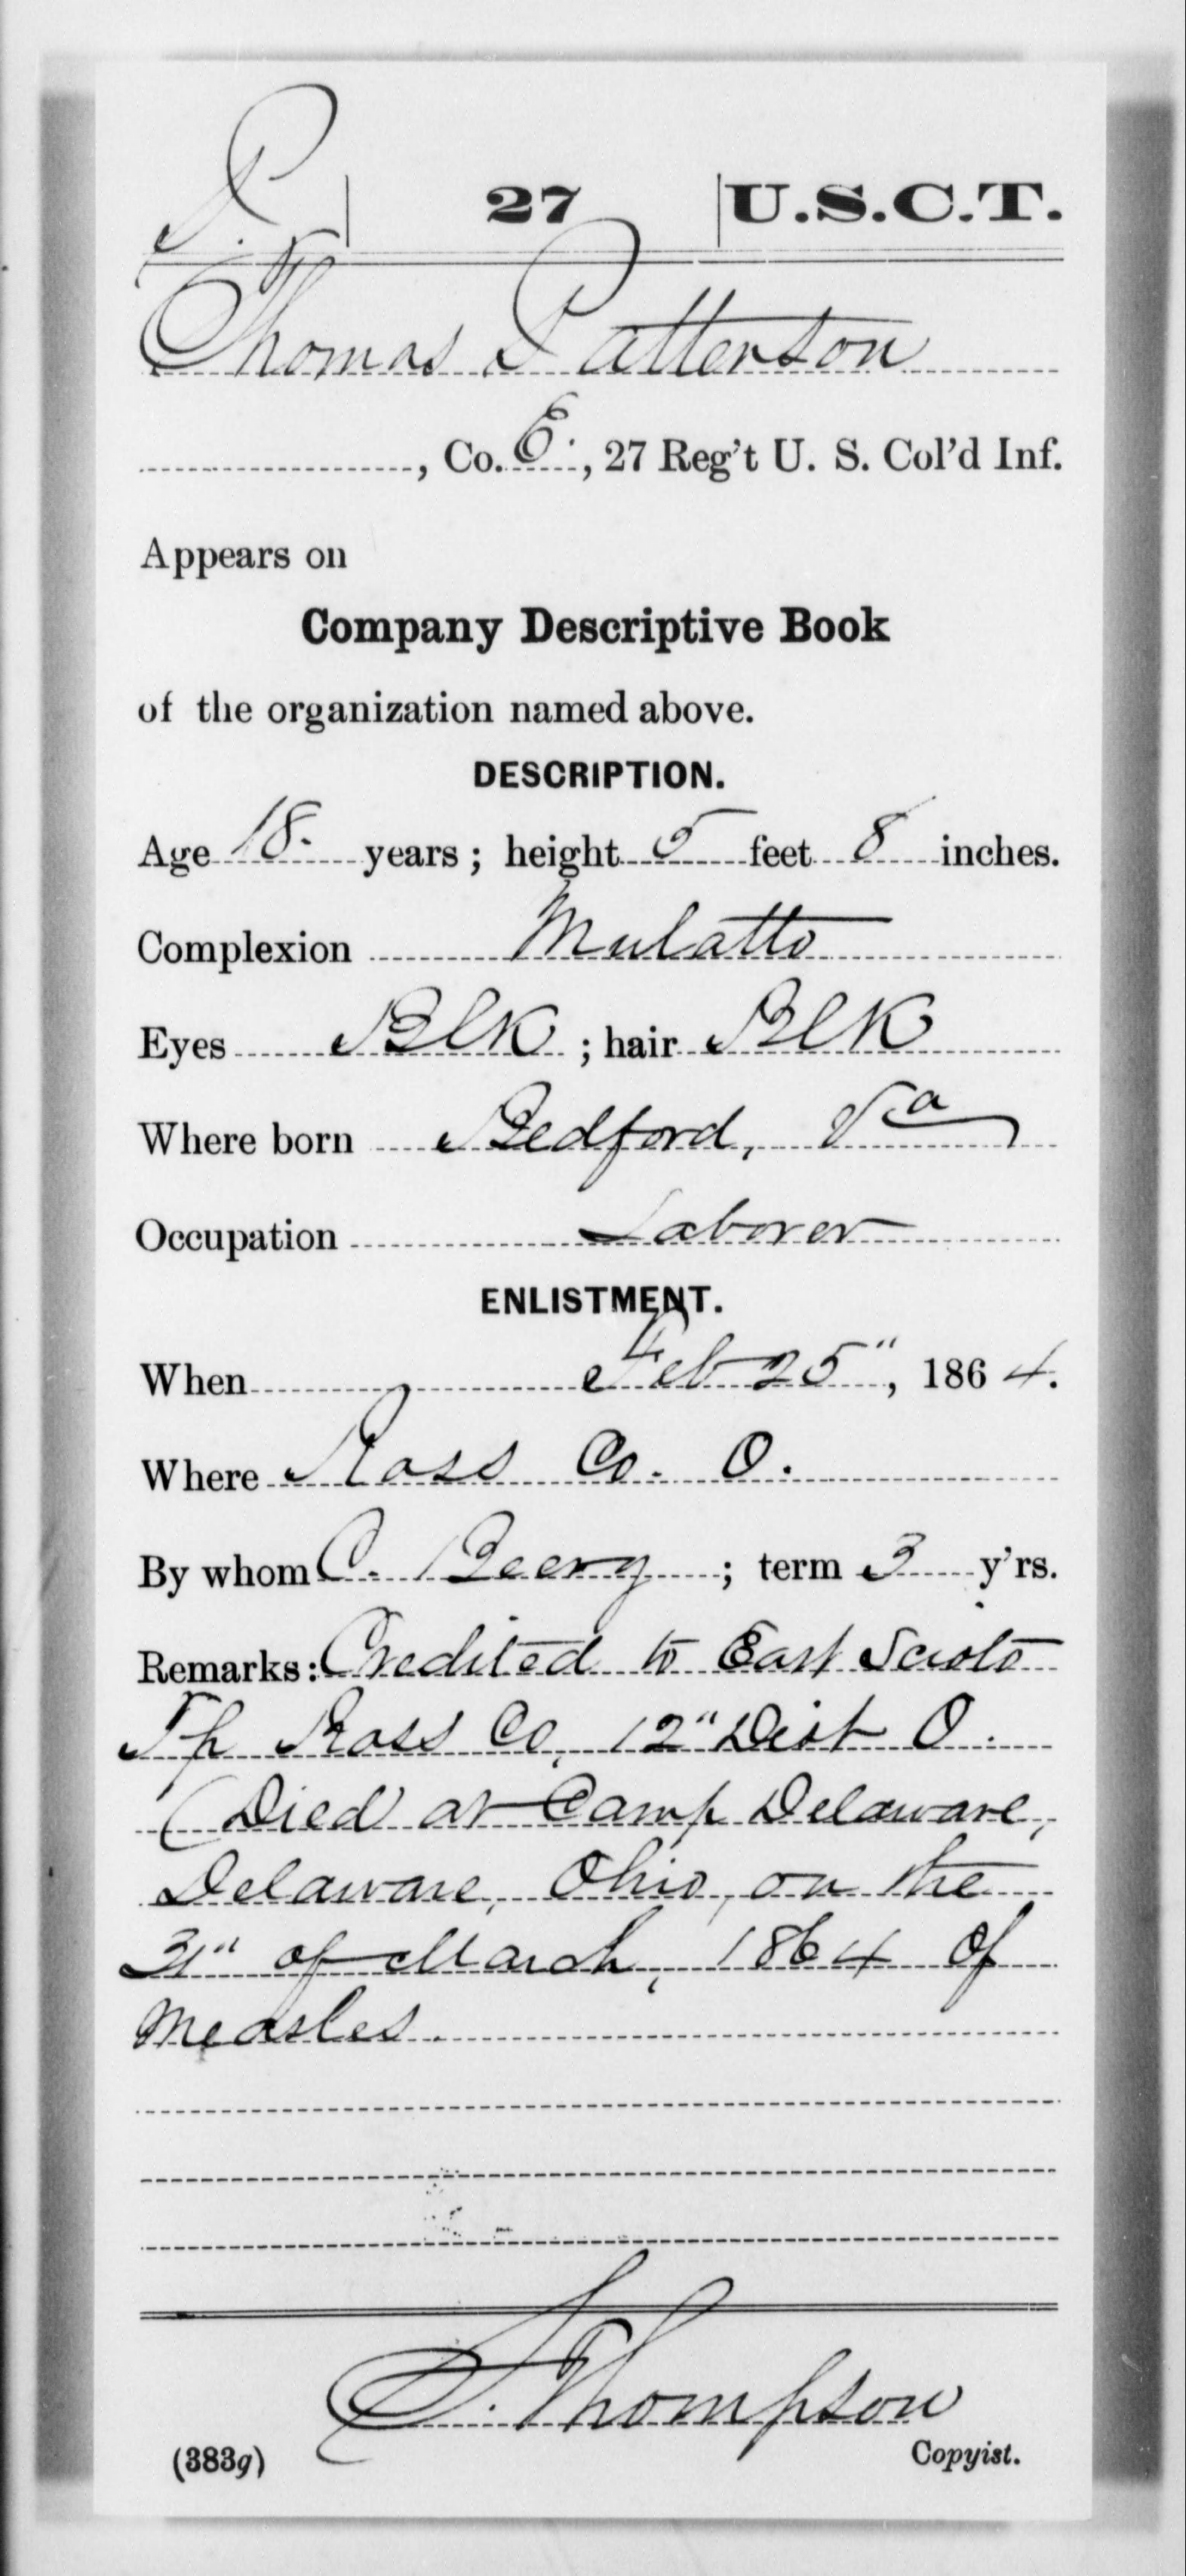 P. | 27 | U.S.C.T.
Thomas Patterson
, Co. E., 27 Reg't U. S. Col'd Inf.
Appears on
Company Descriptive Book
of the organization named above.
DESCRIPTION.
Age 18. years; height 5 feet 8 inches.
Complexion Mulatto
Eyes Blk; hair Blk
Where born Bedford, Va
Occupation Laborer
ENLISTMENT.
When Feb 25", 1864.
Where Ross Co. O.
By whom C. Beery; term 3 y'rs.
Remarks: Credited to East Scioto
Tp Ross Co, 12" Dist O.
(Died at Camp Delaware,
Delaware, Ohio, on the
31" of March, 1864 of
Measles.
Thompson
(383g) Copyist.